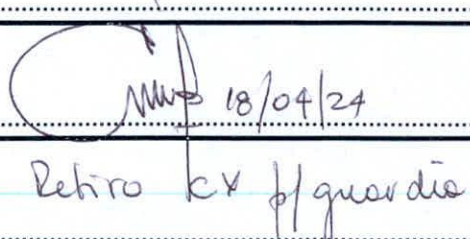 18/04/24
Retiro KX p/ guardia